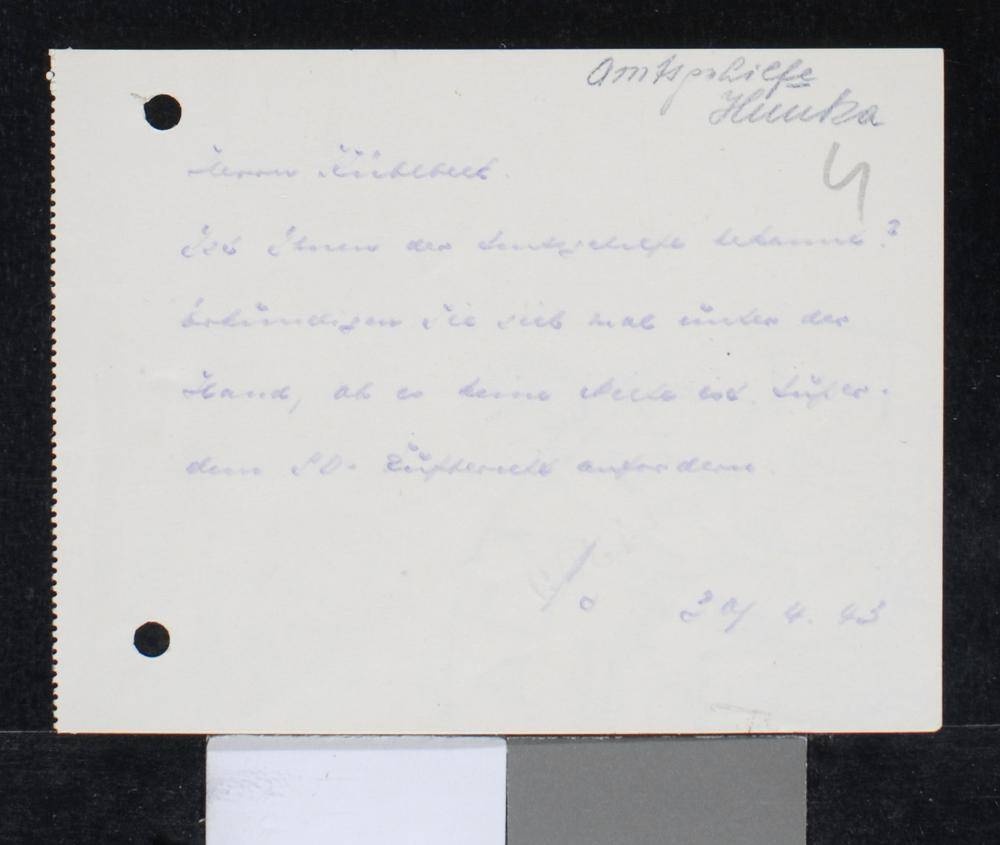 Amtsgehilfe
Hunka
4
Herrn
Ist Ihnen der Amtsgehilfe bekannt?
Erkundigen Sie sich mal unter der
Hand, ob es keine Niete ist. Außer-
dem SD. anfordern.
4. 43